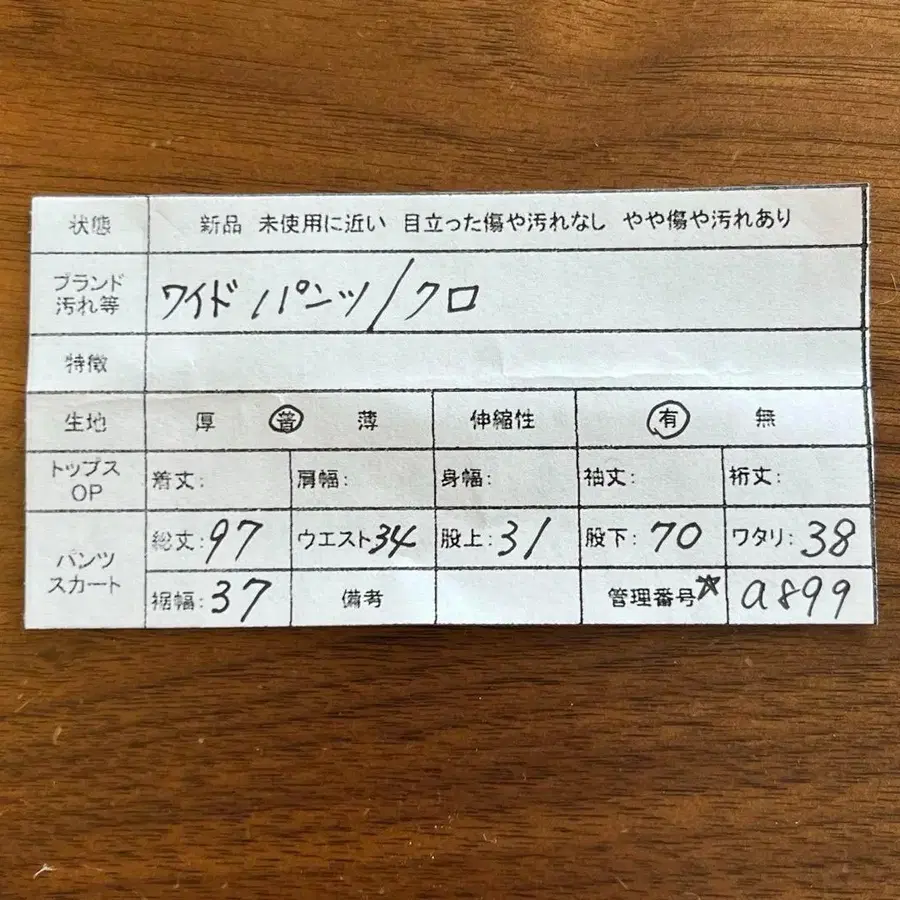 状態 新品 未使用に近い 目立った傷や汚れなし やや傷や汚れあり
ブランド
汚れ等 ワイドパンツ/クロ
特徴
生地 厚 普 薄 伸縮性 有 無
トップス
OP 着丈: 肩幅: 身幅: 袖丈: 裄丈:
パンツ
スカート 総丈:97 ウエスト34 股上:31 股下:70 ワタリ:38
裾幅:37 備考 管理番号☆ a899